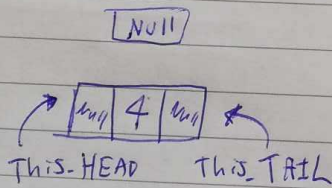 Null
null 4 null
This_HEAD This_TAIL